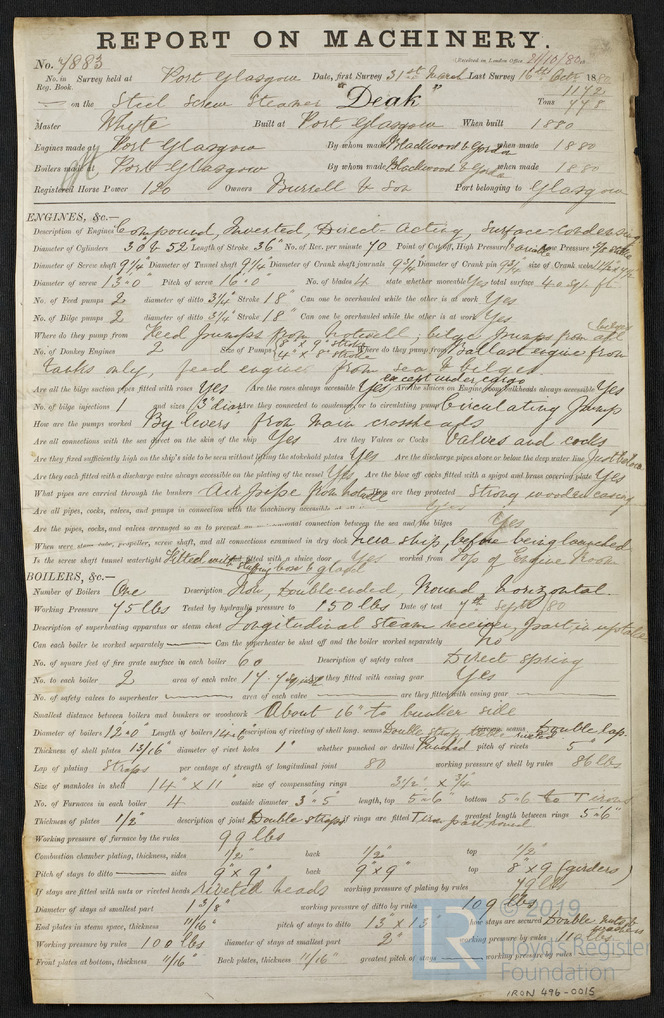 REPORT ON MACHINERY.
No. 4883 (Received in London Office 21/10/80
No. in Reg. Book. Survey held at Port Glasgow Date, first Survey 31st March Last Survey 16th Octr 1880
on the Steel Screw Steamer "Deak" Tons 1172 778
Master Whyte Built at Port Glasgow When built 1880
Engines made at Port Glasgow By whom made Blackwood & Gordon when made 1880
Boilers made at Port Glasgow By whom made Blackwood & Gordon when made 1880
Registered Horse Power 120 Owners Burrell & Son Port belonging to Glasgow
ENGINES, &c.—
Description of Engines Compound, Inverted, Direct-Acting, Surface-Condensing
Diameter of Cylinders 30" & 52" Length of Stroke 36" No. of Rev. per minute 70 Point of Cut off, High Pressure Variable Low Pressure
Diameter of Screw shaft 9 1/4" Diameter of Tunnel shaft 9 1/4" Diameter of Crank shaft journals 9 3/4" Diameter of Crank pin 9 3/4" size of Crank webs
Diameter of screw 13'0" Pitch of screw 16'0" No. of blades 4 state whether moveable Yes total surface sq. ft.
No. of Feed pumps 2 diameter of ditto 3 1/4" Stroke 18" Can one be overhauled while the other is at work Yes
No. of Bilge pumps 2 diameter of ditto 3 1/4" Stroke 18" Can one be overhauled while the other is at work Yes
Where do they pump from Feed pumps from hotwell; bilge pumps from all bilges
No. of Donkey Engines 2 Size of Pumps 8" x 9" stroke 4" x 8" stroke Where do they pump from Ballast engine from
tanks only, feed engine from sea & bilges
Are all the bilge suction pipes fitted with roses Yes Are the roses always accessible Yes, except under cargo Are the sluices on Engine room bulkheads always accessible Yes
No. of bilge injections 1 and sizes 3" diar Are they connected to condenser, or to circulating pump Circulating Pump
How are the pumps worked By levers from main crossheads
Are all connections with the sea direct on the skin of the ship Yes Are they Valves or Cocks Valves and cocks
Are they fixed sufficiently high on the ship's side to be seen without lifting the stokehold plates Yes Are the discharge pipes above or below the deep water line Just below
Are they each fitted with a discharge valve always accessible on the plating of the vessel Yes Are the blow off cocks fitted with a spigot and brass covering plate Yes
What pipes are carried through the bunkers Air pipe from hotwell How are they protected Strong wooden casing
Are all pipes, cocks, valves, and pumps in connection with the machinery accessible at Yes
Are the pipes, cocks, and valves arranged so as to prevent an connection between the sea and the bilges Yes
When were stern tube, propeller, screw shaft, and all connections examined in dry dock New ship, before being launched
Is the screw shaft tunnel watertight Fitted with stuffing box & gland fitted with a sluice door Yes worked from Top of Engine Room
BOILERS, &c.—
Number of Boilers One Description Iron, Double ended, Round Horizontal.
Working Pressure 75 lbs Tested by hydraulic pressure to 150 lbs Date of test 7th Sept 80
Description of superheating apparatus or steam chest Longitudinal steam receiver, part in uptake
Can each boiler be worked separately Can the superheater be shut off and the boiler worked separately no
No. of square feet of fire grate surface in each boiler 60 Description of safety valves Direct spring
No. to each boiler 2 area of each valve 17.7 sq. in. are they fitted with easing gear Yes
No. of safety valves to superheater area of each valve are they fitted with easing gear
Smallest distance between boilers and bunkers or woodwork About 16" to bunker side
Diameter of boilers 12'0" Length of boilers description of riveting of shell long. seams Double strap riveted seams Double lap
Thickness of shell plates 13/16" diameter of rivet holes 1" whether punched or drilled Punched pitch of rivets 5"
Lap of plating Straps per centage of strength of longitudinal joint 80 working pressure of shell by rules 86 lbs
Size of manholes in shell 14" x 11" size of compensating rings 3 1/2" x 3/4"
No. of Furnaces in each boiler 4 outside diameter 3'5" length, top 5'6" bottom 5'6 to T irons
Thickness of plates 1/2" description of joint Double straps if rings are fitted T iron part round greatest length between rings 5'6"
Working pressure of furnace by the rules 99 lbs
Combustion chamber plating, thickness, sides 1/2" back 1/2" top 1/2"
Pitch of stays to ditto sides 9" x 9" back 9" x 9" top 8" x 9 (girders)
If stays are fitted with nuts or riveted heads riveted heads working pressure of plating by rules 79 lbs
Diameter of stays at smallest part 1 3/8" working pressure of ditto by rules 109 lbs
End plates in steam space, thickness 11/16" pitch of stays to ditto 13" x 13" how stays are secured Double nuts & washers
Working pressure by rules 100 lbs diameter of stays at smallest part 2" working pressure by rules 110 lbs
Front plates at bottom, thickness 11/16" Back plates, thickness 11/16" greatest pitch of stays working pressure by rules
LR
© 2019
Lloyd's Register
Foundation
IRON 496-0015